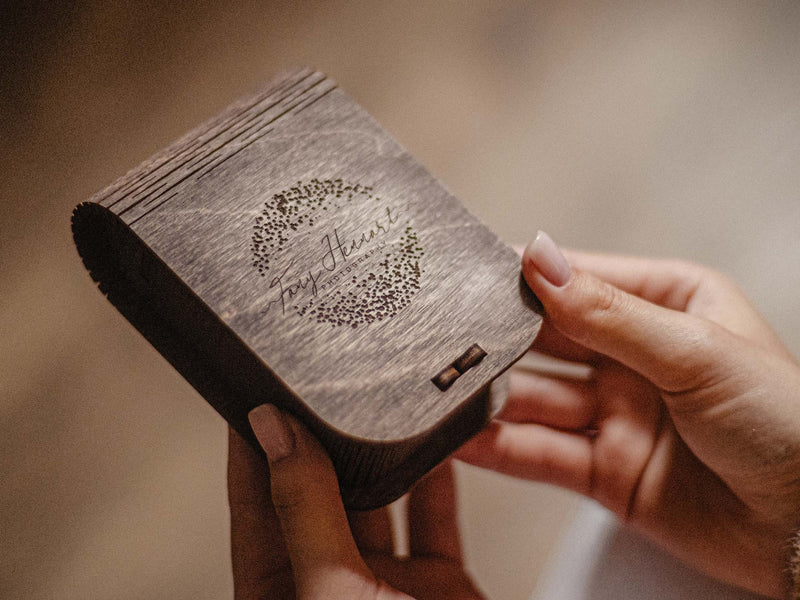 Tony Hennart
PHOTOGRAPHY